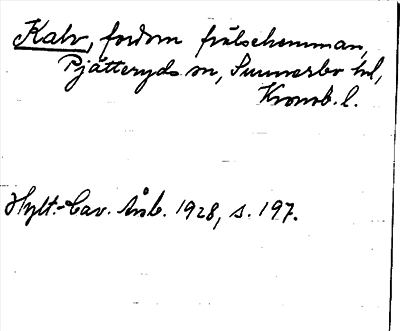 Kalv, fordom frälsehemman,
Pjätteryds sn, Sunnerbo hd,
Kronob. l.
Hylt.-Cav. Årsb. 1928, s. 197.